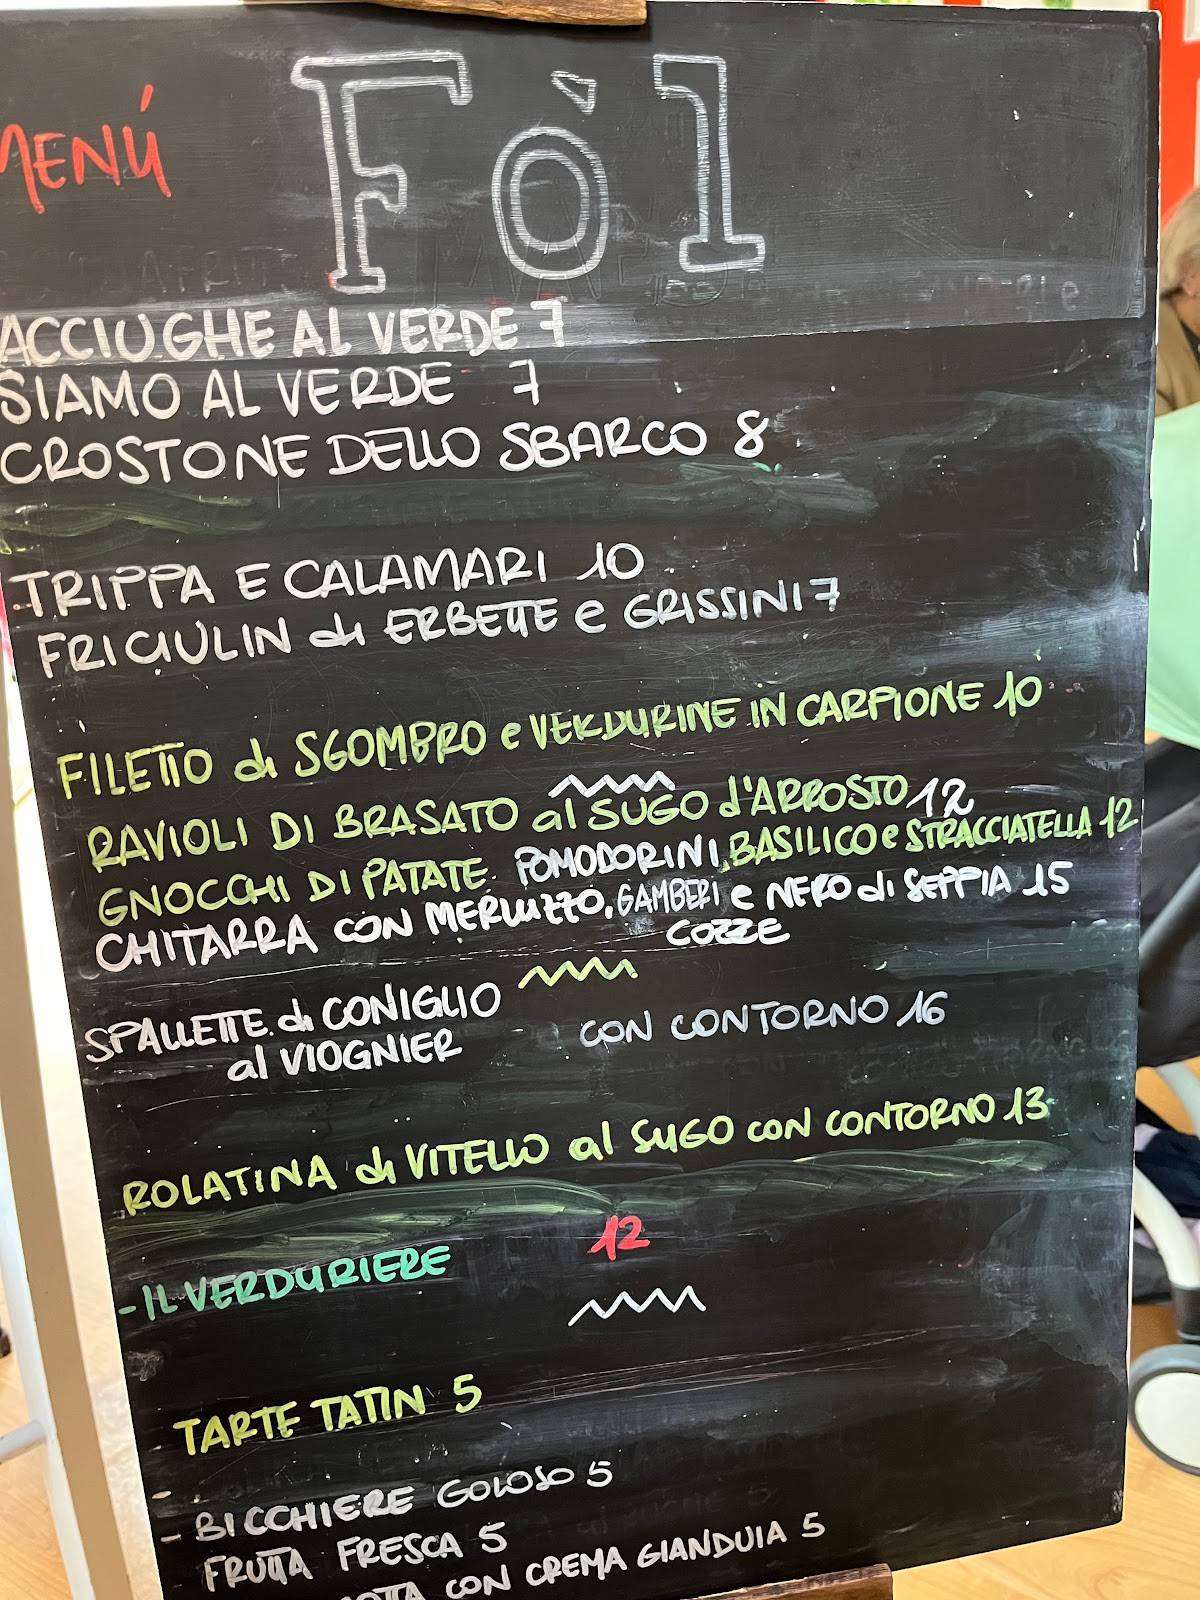 MENÚ
Fòl
ACCIUGHE AL VERDE 7
SIAMO AL VERDE 7
CROSTONE DELLO SBARCO 8
TRIPPA E CALAMARI 10
FRICIULIN di ERBETTE e GRISSINI 7
FILETTO di SGOMBRO e VERDURINE IN CARPIONE 10
RAVIOLI DI BRASATO al SUGO d'ARROSTO 12
GNOCCHI DI PATATE. POMODORINI, BASILICO e STRACCIATELLA 12
CHITARRA CON MERLUZZO, GAMBERI e NERO di SEPPIA 15
COZZE
SPALLETTE di CONIGLIO
al VIOGNIER CON CONTORNO 16
ROLATINA di VITELLO al SUGO CON CONTORNO 13
12
- IL VERDURIERE
TARTE TATIN 5
- BICCHIERE GOLOSO 5
FRUTTA FRESCA 5
CON CREMA GIANDUIA 5